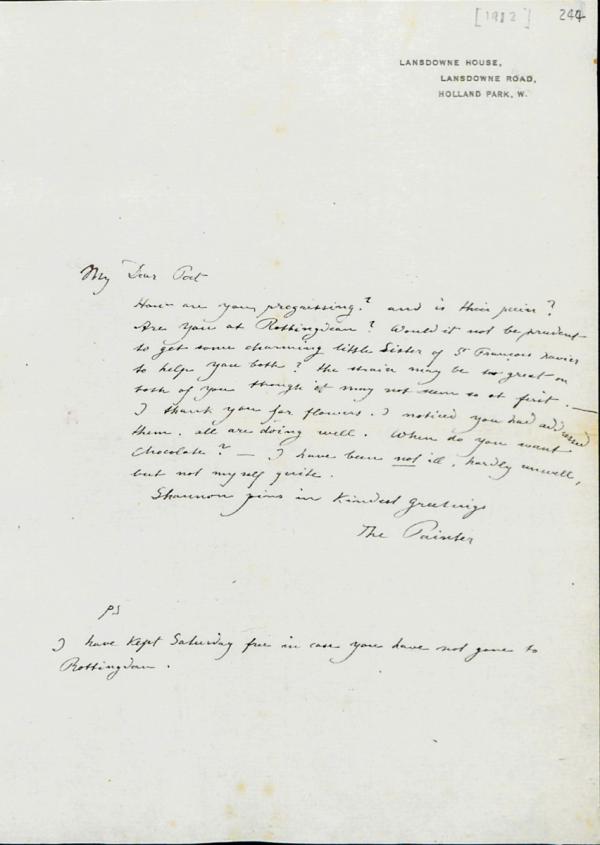 [1912] 244
LANSDOWNE HOUSE,
LANSDOWNE ROAD,
HOLLAND PARK, W.
My Dear Poet
How are you progressing? and is their pain?
Are you at Rottingdean? Would it not be prudent
to get some charming little Sister of St François Xavier
to help you both? the strain may be so great on
both of you though it may not seem so at first. —
I thank you for flowers. I noticed you had addressed
them. all are doing well. When do you want
Chocolate? — I have been not ill, hardly unwell,
but not myself quite.
Shannon joins in Kindest greetings
The Painter
PS
I have Kept Saturday free in case you have not gone to
Rottingdean.